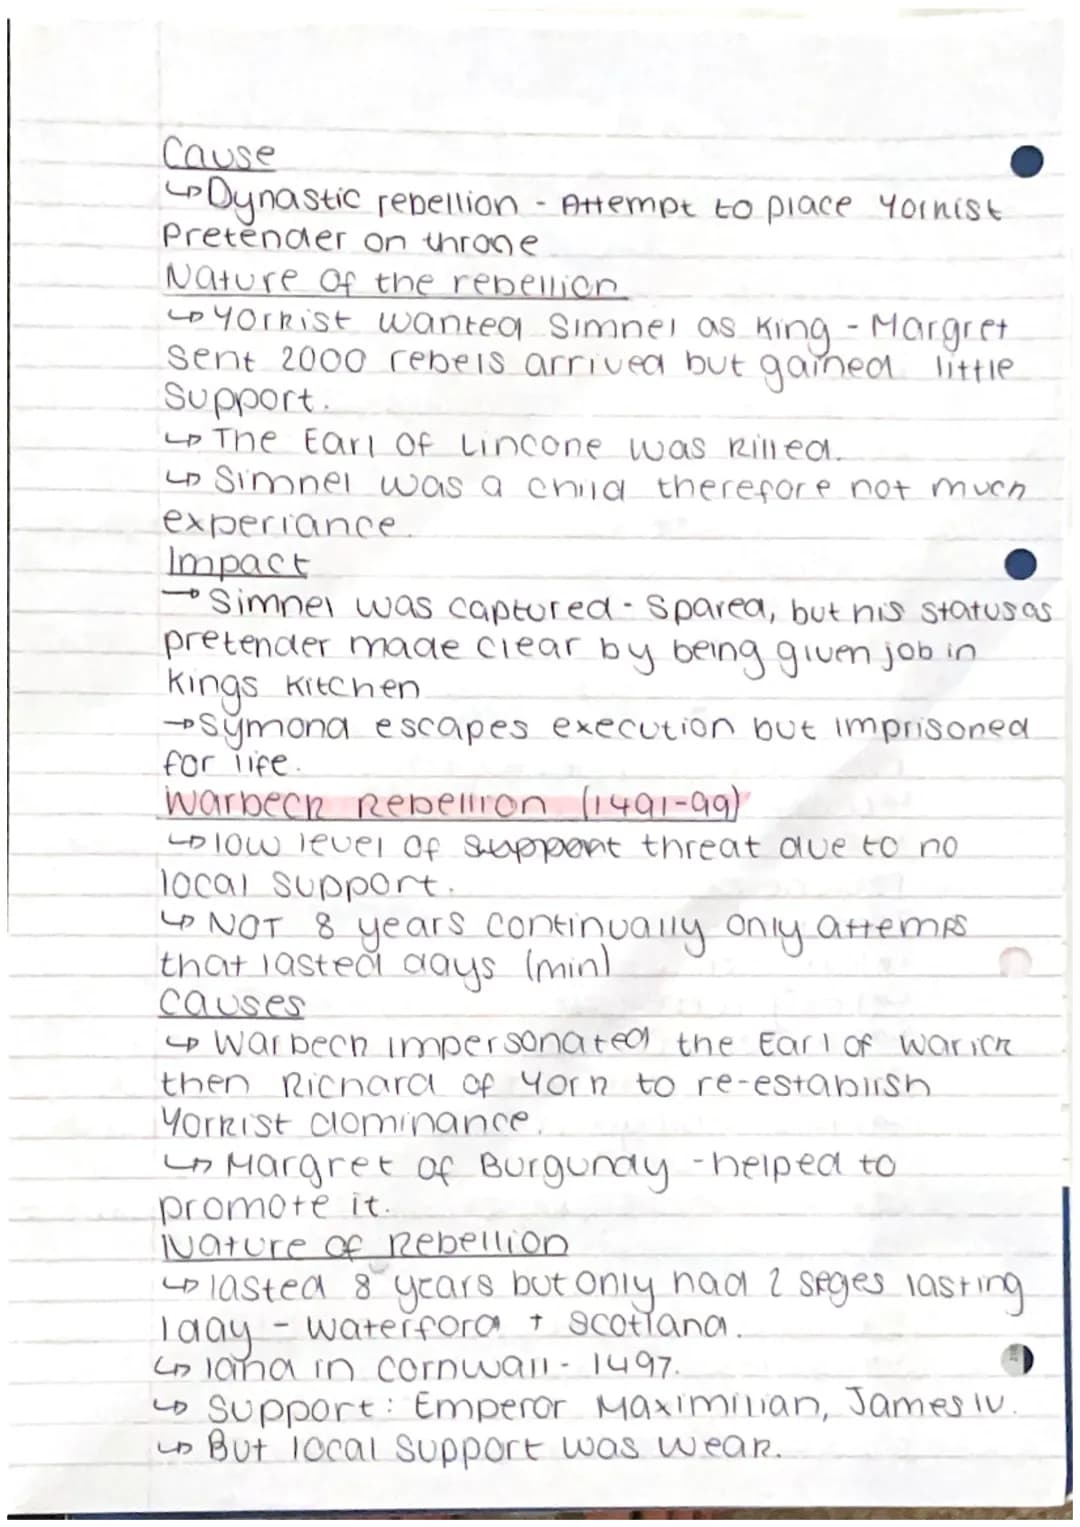 Cause
↳ Dynastic rebellion - Attempt to place Yorkist
Pretender on throne
Nature of the rebellion
↳ Yorkist wanted Simnel as King - Margret
sent 2000 rebels arrived but gained little
support.
↳ The Earl of Lincone was killed.
↳ Simnel was a child therefore not much
experiance.
Impact
→ Simnel was captured - Spared, but his status as
pretender made clear by being given job in
kings kitchen
→ Symond escapes execution but imprisoned
for life.
Warbeck Rebellion (1491-99)
↳ low level of support threat due to no
local support.
↳ NOT 8 years continually only attemps
that lasted days (min)
causes
↳ Warbeck impersonated the Earl of Warick
then Richard of York to re-establish
Yorkist dominance.
↳ Margret of Burgundy - helped to
promote it.
Nature of Rebellion
↳ lasted 8 years but only had 2 seges lasting
1 day - Waterford + Scotland.
↳ land in cornwall - 1497.
↳ Support: Emperor Maximilian, James IV.
↳ But local support was weak.